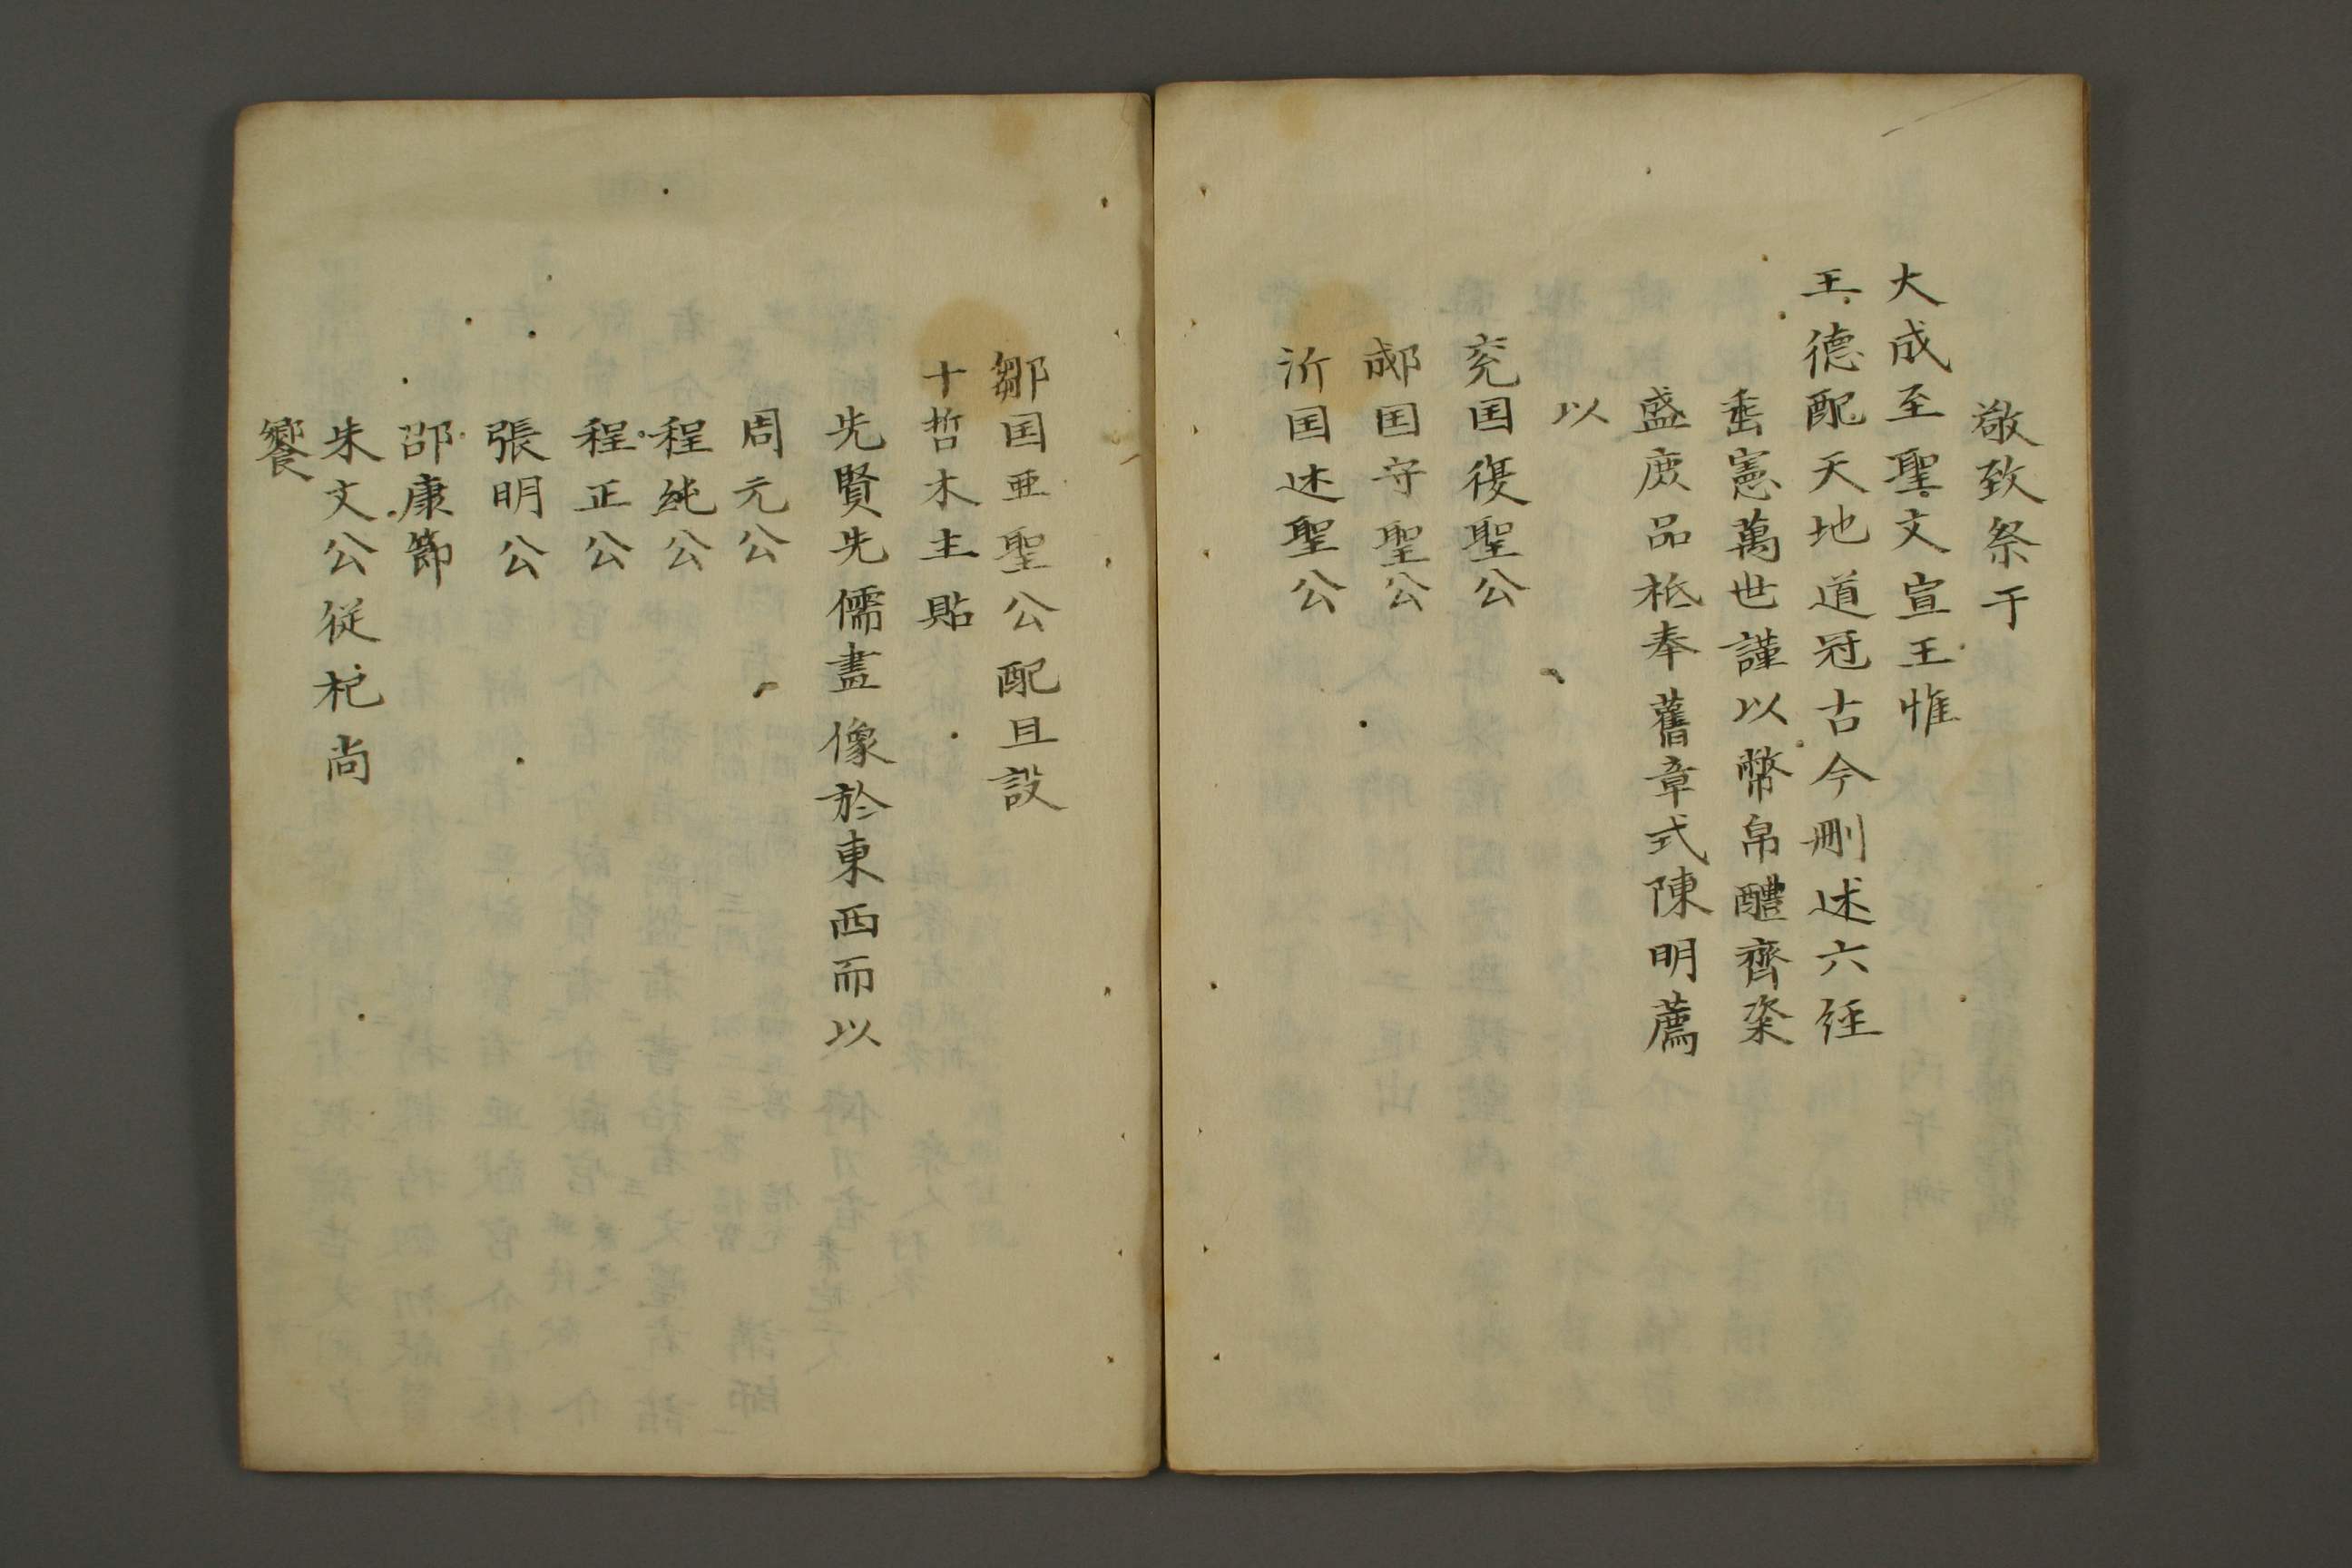 敬致祭于
大成至聖文宣王惟
王德配天地道冠古今刪述六经
垂憲萬世謹以幣帛醴齊粢
盛庶品柢奉舊章式陳明薦
以
兖国復聖公
郕国守聖公
沂国述聖公
鄒国亜聖公配且設
十哲木主貼
先賢先儒畫像於東西而以
周元公
程純公
程正公
張明公
邵康節
朱文公従祀尚
饗